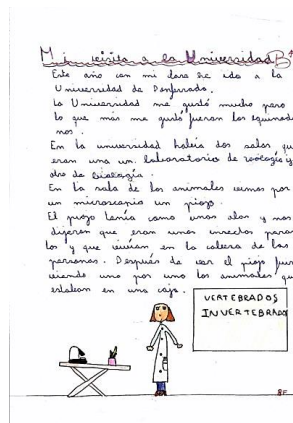 Mi visita a la Universidad
Este año con mi clase he ido a la
Universidad de Ponferrada.
La Universidad me gustó mucho pero
lo que más me gustó fueron los equinoder
mos.
En la universidad había dos salas que
eran una un laboratorio de zoología y
otro de biología.
En la sala de los animales vimos por
un microscopio un piojo.
El piojo tenía como unas alas y nos
dijeron que eran unos insectos para
los y que vivían en la cabeza de las
personas. Después de ver el piojo fui
viendo uno por uno los animales que
estaban en una caja.
VERTEBRADOS
INVERTEBRADOS